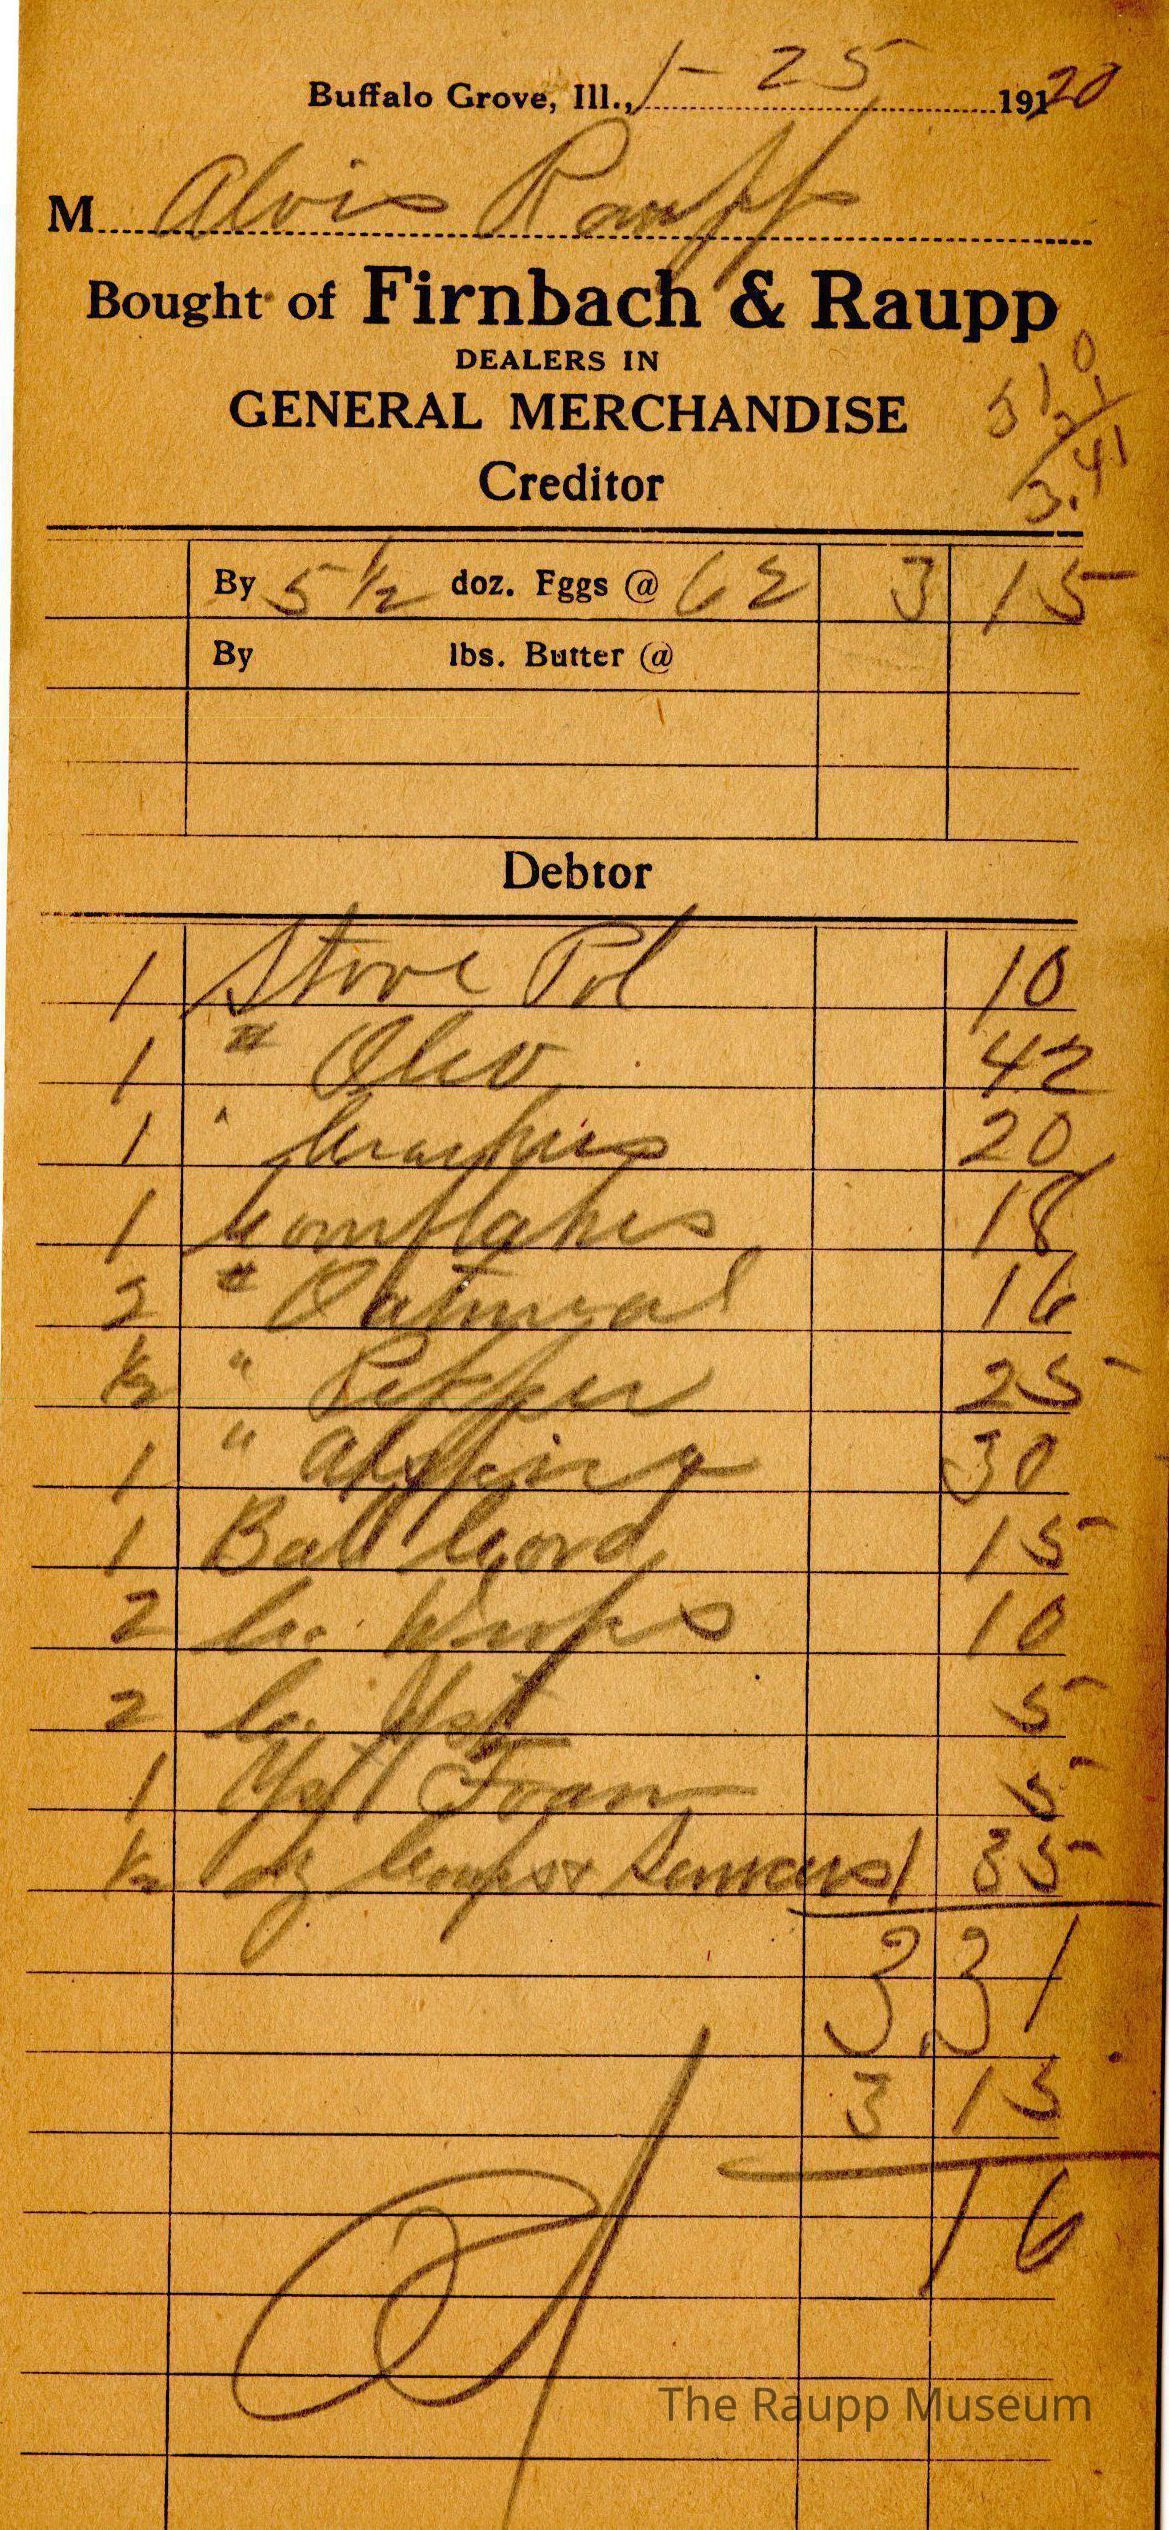 Buffalo Grove, Ill., 1-25 19120
M Alvis Raupp
Bought of Firnbach & Raupp
DEALERS IN
GENERAL MERCHANDISE
5 10
3.41
Creditor
By 5 1/2 doz. Eggs @ 62 3 15
By lbs. Butter @
Debtor
1 Stove Pol 10
1 # Oleo 42
1 " Crackers 20
1 Cornflakes 18
2 # Oatmeal 16
1/2 " Pepper 25
1 " 30
1 Ball Cord 15
2 La. Wicks 10
2 5
1 Yst Foam 5
1/2 dz Cups & Saucers 1 35
3.31
3 15
16
The Raupp Museum